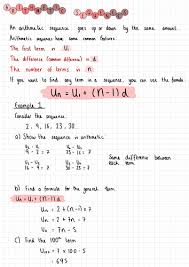 Arithmetic Sequences
An arithmetic sequence goes up or down by the same amount.
Arithmetic sequences have some common features.
The first term is U₁
The difference (common difference) is d
The number of terms is n
If you want to find any term in a sequence, you can use the formula.
Uₙ = U₁ + (n-1)d
Example 1
Consider the sequence
2, 9, 16, 23, 30...
a) Show the sequence is arithmetic
U₂ - U₁
9 - 2 = 7
U₃ - U₂
16 - 9 = 7
Same difference between each term
b) Find a formula for the general term.
Uₙ = U₁ + (n-1)d
Uₙ = 2 + (n-1) × 7
Uₙ = 2 + 7n - 7
Uₙ = 7n - 5
c) Find the 100th term
U₁₀₀ = 7 × 100 - 5
= 695